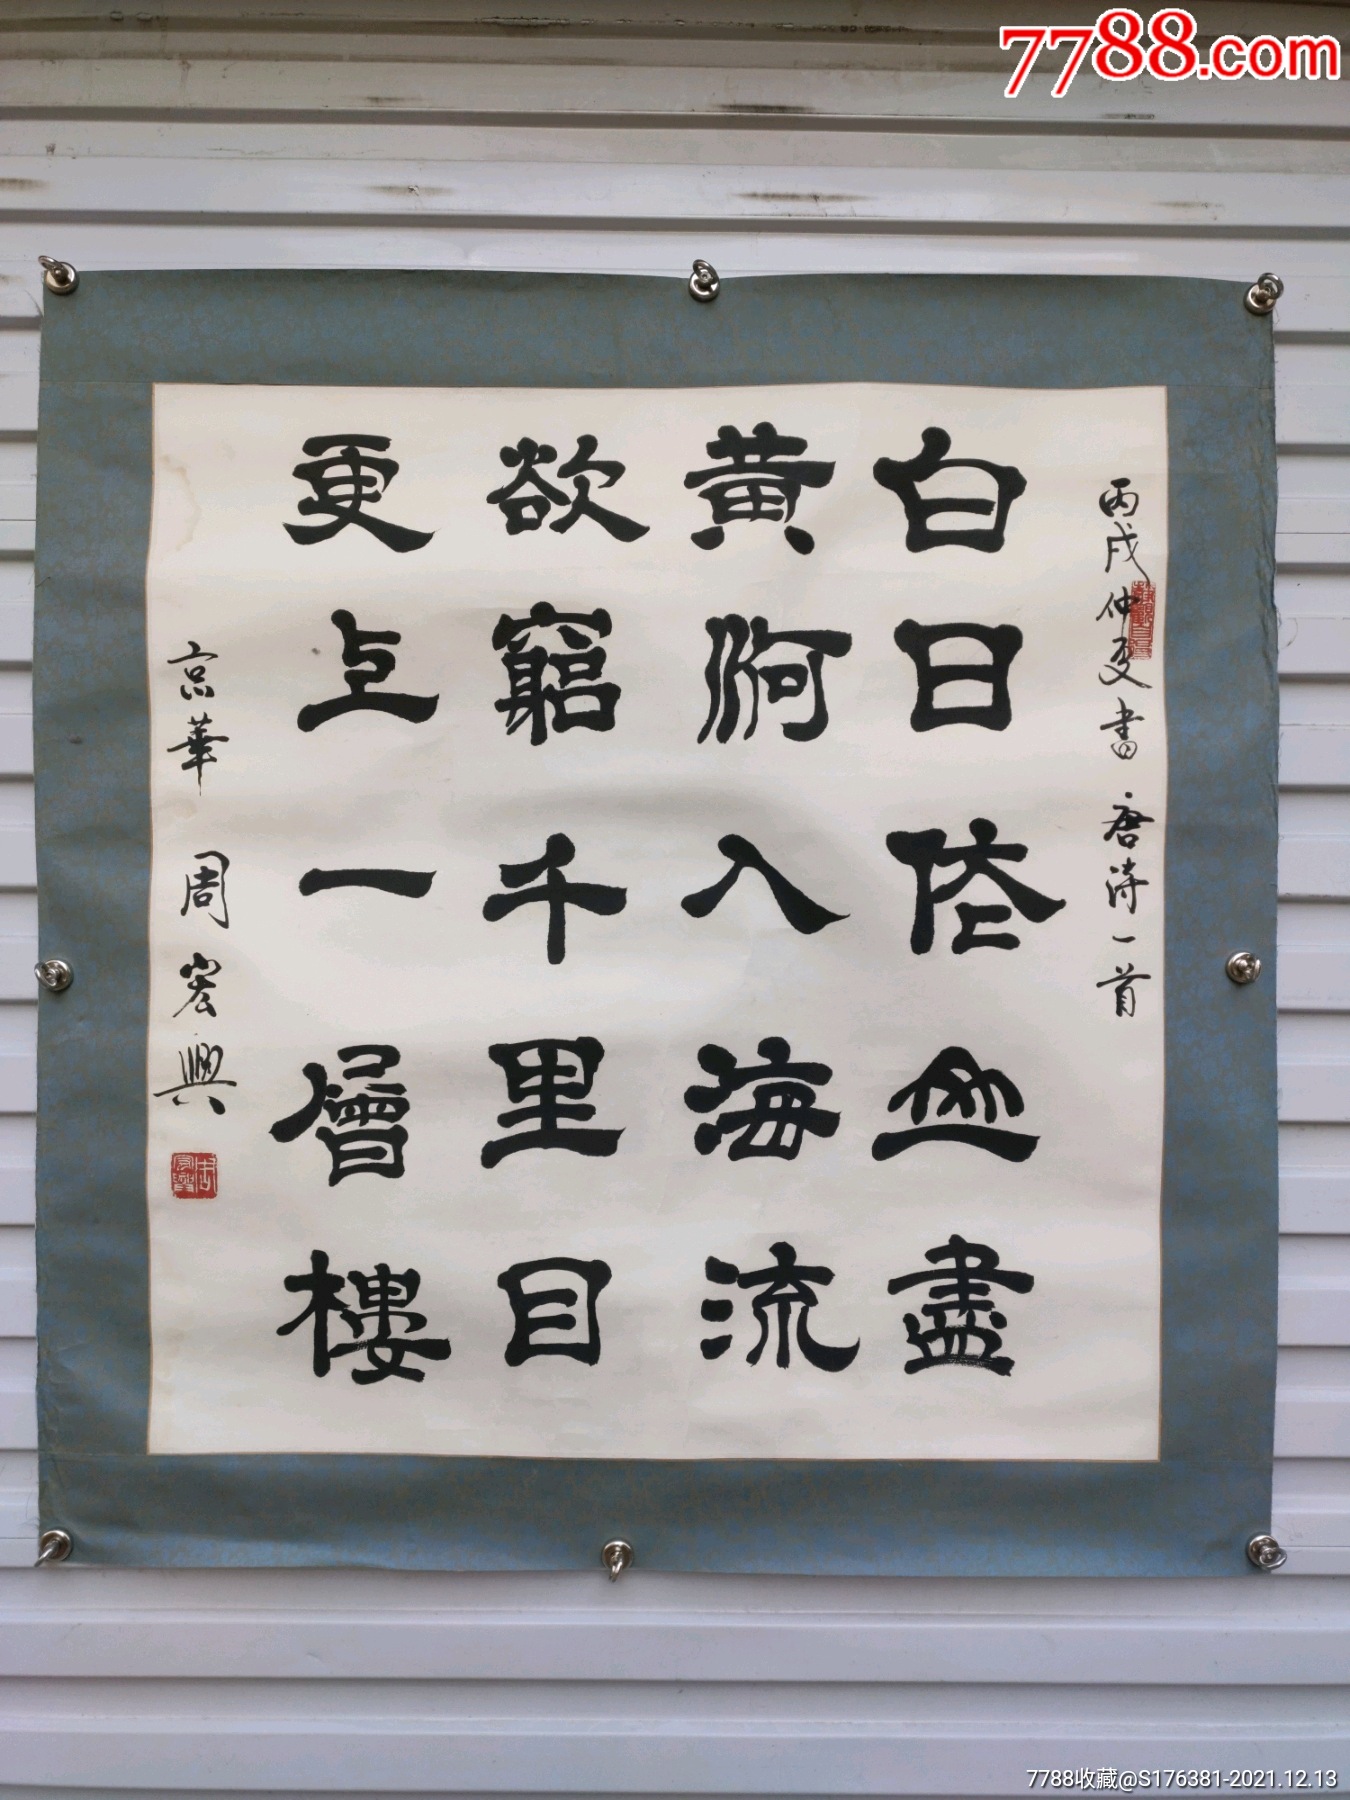 7788.com
丙戌仲夏書唐詩一首
白日依山盡
黄河入海流
欲窮千里目
更上一層樓
京華 周宏興
7788收藏@S176381-2021.12.13